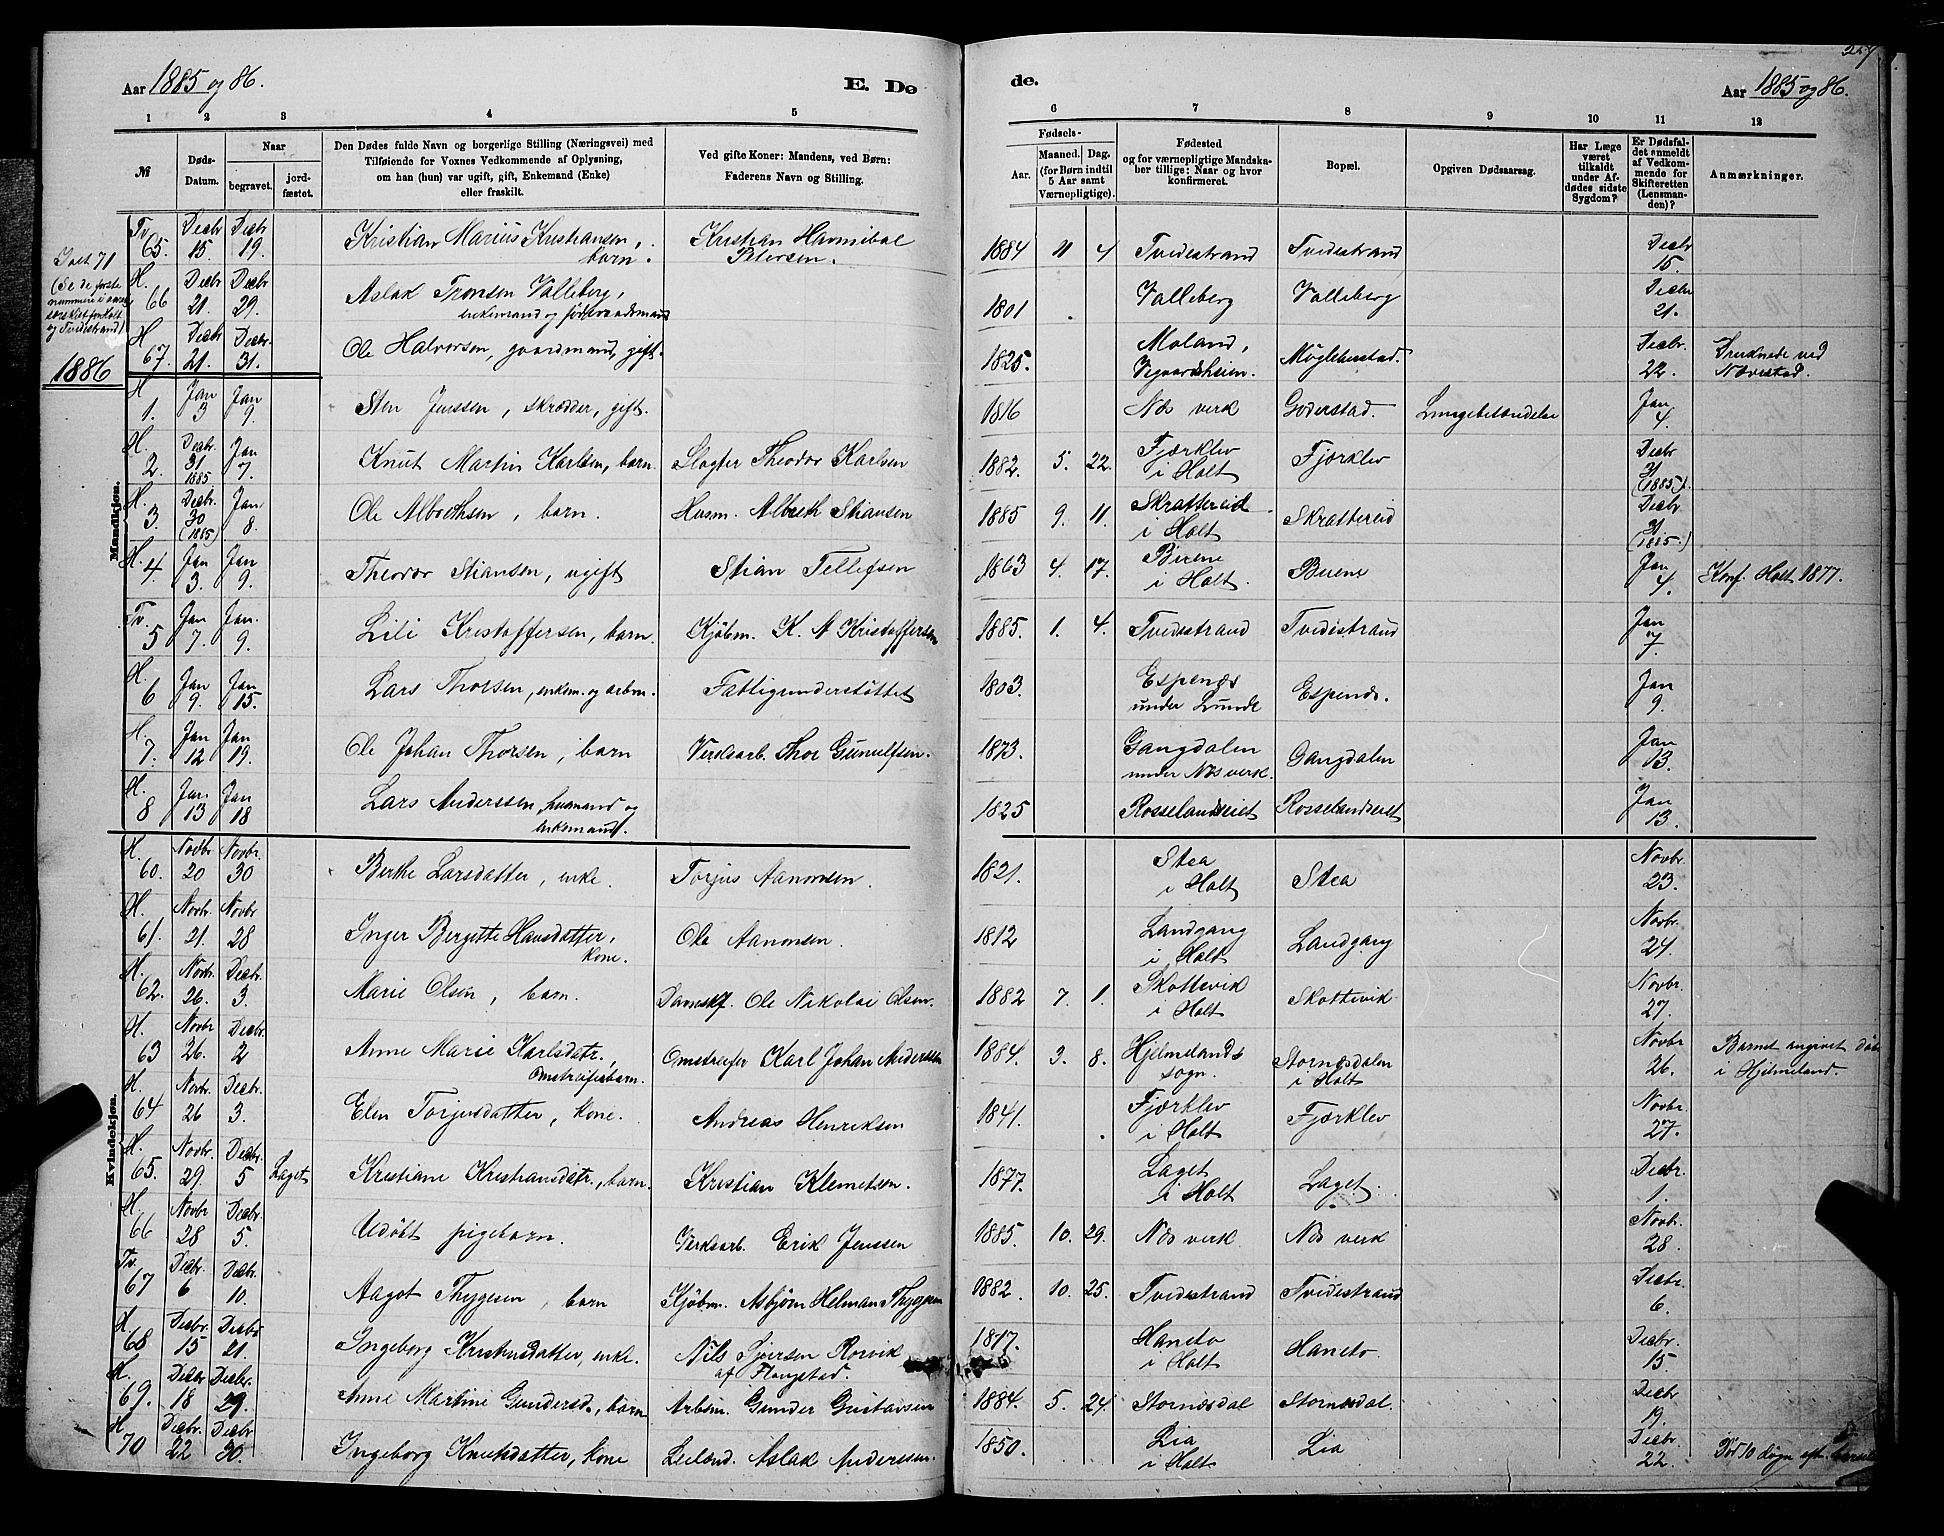 257
Aar 1885 og 86.
E. Dø
de.
Aar 1885 og 86.
1 2 3 4 5 6 7 8 9 10 11 12
№
Døds-Datum.
Naar
begravet.
jord-fæstet.
Den Dødes fulde Navn og borgerlige Stilling (Næringsvei) med
Tilføiende for Voxnes Vedkommende af Oplysning,
om han (hun) var ugift, gift, Enkemand (Enke)
eller fraskilt.
Ved gifte Koner: Mandens, ved Børn:
Faderens Navn og Stilling.
Fødsels-
Aar.
Maaned. Dag.
(for Børn indtil
5 Aar samt
Værnepligtige).
Fødested
og for værnepligtige Mandska-
ber tillige: Naar og hvor
konfirmeret.
Bopæl.
Opgiven Dødsaarsag.
Har Læge
været
tilkaldt
under Af-
dødes sidste
Sygdom?
Er Dødsfal-
det anmeldt
af Vedkom-
mende for
Skifteretten
(Lensman-
den)?
Anmærkninger.
Ialt 71
(Se de første
nummere i
for Holt
og Tvedestrand)
1886
Mandkjøn.
Tv. 65. Decbr 15. Decbr 19. Kristian Marius Kristiansen, barn. Kristian Hannibal Petersen. 1884 11 4 Tvedestrand Tvedestrand Decbr 15.
H. 66 Decbr 21. Decbr 29. Aslak Tronsen Valleberg, enkemand og føderaadsmand 1801 Valleberg Valleberg Decbr 21.
H 67. Decbr 21. Decbr 31. Ole Halvorsen, gaardmand, gift. 1825. Moland, Vegaardsheien. Møglebustad. Decbr. 22. Druknede ved Nævestad.
H 1. Jan 3 Jan 9. Sten Jenssen, skrædder, gift. 1816 Næs verk Goderstad. Lungebetændelse Jan 4.
H. 2. Decbr. 31 1885 Jan 7. Knut Martin Karlsen, barn. Slagter Theodor Karlsen 1882. 5. 22. Fjærklev i Holt Fjærklev Decbr 31 (1885).
H 3. Decbr. 30 (1885) Jan 8. Ole Albrethsen, barn. Husm. Albreth Stiansen 1885 9. 11. Skrattereid i Holt Skrattereid Decbr 31 (1885.)
H. 4. Jan 3. Jan 9. Theodor Stiansen, ugift Stian Tellefsen 1863 4. 17. Biene i Holt. Biene Jan 4. Konf. Holt 1877.
Tv. 5 Jan 7. Jan. 9. Lili Kristoffersen, barn. Kjøbm. K. A Kristoffersen 1885. 1. 4. Tvedestrand Tvedestrand Jan 7.
H. 6 Jan 9. Jan 15. Lars Thorsen, enkem. og arbm. Fattigunderstøttet 1803. Espenæs under Lunde Espenæs. Jan 9.
H. 7. Jan 12 Jan 19. Ole Johan Thorsen, barn Verksarb. Thor Gunulfsen. 1873 Gangdalen under Næs verk. Gangdalen Jan 13.
H. 8 Jan 13 Jan 18 Lars Anderssen, husmand og enkemand. 1825 Rosselandseiet Rosselandseiet Jan 13.
Kvindekjøn.
H. 60. Novbr 20 Novbr. 30 Berthe Larsdatter, enke. Torjus Aanonsen. 1821. Stea i Holt Stea Novbr. 23.
H. 61. Novbr. 21. Novbr 28 Inger Bergitte Hansdatter, kone. Ole Aanonsen. 1812 Landgang i Holt Landgang Novbr. 24.
H. 62. Novbr. 26. Decbr. 3. Marie Olsen, barn. Dampskf. Ole Nikolai Olsen. 1882 7. 1. Skottevik i Holt Skottevik Novbr. 27.
H. 63 Novbr 26. Decbr. 2 Anne Marie Karlsdatr., Omstreiferbarn. Omstreifer Karl Johan Anderssen 1884. 3. 8. Hjelmelands sogn. Stornæsdalen i Holt Novbr 26. Barnet angivet døbt i Hjelmeland.
H. 64 Novbr 26 Decbr. 3. Elen Torjusdatter, kone. Andreas Henriksen 1841. Fjærklev i Holt Fjærklev Novbr 27.
H. 65. Novbr. 29. Decbr. 5 Laget Kristiane Kristiansdatr., barn. Kristian Klemetsen. 1877. Laget i Holt Laget. Decbr. 1.
H 66 Novbr 28 Decbr. 5. Udøbt pigebarn. Verksarb. Erik Jenssen 1885. 10. 29. Næs verk. Næs verk Novbr. 28.
Tv. 67 Decbr. 6 Decbr. 10. Aagot Thygesen, barn Kjøbm. Asbjørn Helman Thygesen 1882. 10. 25. Tvedestrand Tvedestrand Decbr. 6.
H. 68 Decbr. 15 Decbr 21. Ingeborg Kristensdatter, enke. Nils Sjøersen Rorvik af Flougstad. 1817. Haneto i Holt Haneto. Decbr. 15
H. 69. Decbr 18 Decbr. 29. Anne Martine Gundersd., barn Arbm. Gunder Gustavsen 1884. 5. 24. Stornæsdal Stornæsdal. Decbr 19.
H 70 Decbr. 22 Decbr. 30. Ingeborg Knutsdatter, kone Leilænd. Aslak Anderssen. 1850. Lia i Holt Lia Decbr 22. Død 10 døgn eft.